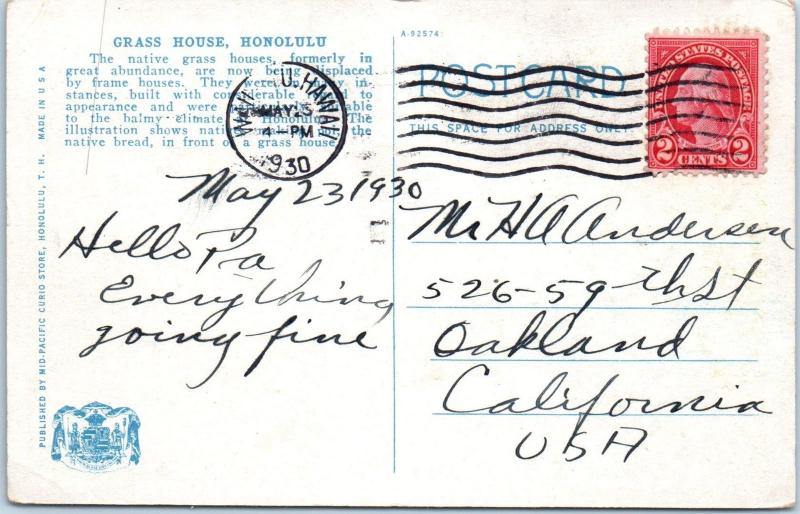 A-92574
GRASS HOUSE, HONOLULU
The native grass houses, formerly in
great abundance, are now being displaced
by frame houses. They were, in
stances, built with considerable to
appearance and were
to the balmy climate Honolulu. The
illustration shows the
native bread, in front of a grass house.
MADE IN U S A
PUBLISHED BY MID-PACIFIC CURIO STORE, HONOLULU, T. H.
HAWAII
MAY 23
4-PM
1930
POST CARD
THIS SPACE FOR ADDRESS ONLY.
UNITED STATES POSTAGE
2 CENTS 2
May 23 1930
Hello Pa
Everything
going fine
Mr H A Andersen
526-59th St
Oakland
California
USA